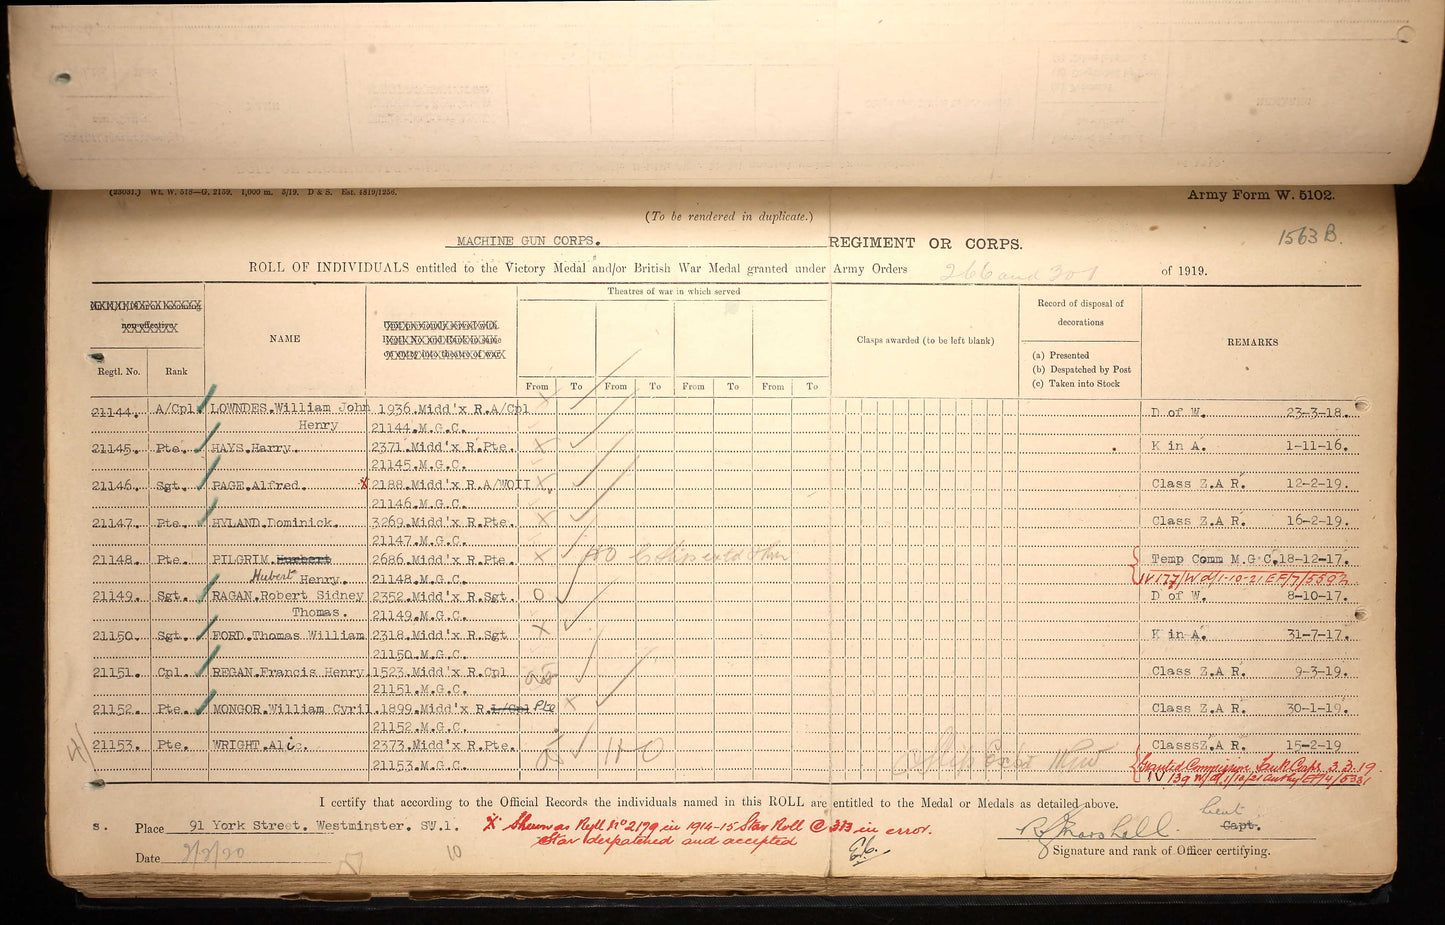 (23031.) Wt. W. 518—G. 2159. 1,000 m. 5/19. D & S. Est. 4819/1256.
Army Form W. 5102.
(To be rendered in duplicate.)
1563 B.
MACHINE GUN CORPS. REGIMENT OR CORPS.
ROLL OF INDIVIDUALS entitled to the Victory Medal and/or British War Medal granted under Army Orders 266 and 301 of 1919.
Theatres of war in which served
Record of disposal of decorations
non-effective
NAME
Clasps awarded (to be left blank)
REMARKS
(a) Presented
(b) Despatched by Post
(c) Taken into Stock
Regtl. No. Rank
From To From To From To From To
21144. A/Cpl. LOWNDES.William John 1936.Midd'x R.A/Cpl D of W. 23-3-18.
Henry 21144.M.G.C.
21145. Pte. HAYS.Harry. 2371.Midd'x R.Pte. X K in A. 1-11-16.
21145.M.G.C.
21146. Sgt. PAGE.Alfred. X 2188.Midd'x R.A/WOII X Class Z.A R. 12-2-19.
21146.M.G.C.
21147. Pte. HYLAND.Dominick. 3269.Midd'x R.Pte. X Class Z.A R. 16-2-19.
21147.M.G.C.
21148. Pte. PILGRIM.Hurbert 2686.Midd'x R.Pte. X Temp Comm M.G.C.18-12-17.
Hubert Henry. 21148.M.G.C. IV177/W d/1-10-21 EF/7/5592
21149. Sgt. RAGAN.Robert Sidney 2352.Midd'x R.Sgt. O D of W. 8-10-17.
Thomas. 21149.M.G.C.
21150. Sgt. FORD.Thomas William 2318.Midd'x R.Sgt X K in A. 31-7-17.
21150.M.G.C.
21151. Cpl. REGAN.Francis Henry. 1523.Midd'x R.Cpl Class Z.A R. 9-3-19.
21151.M.G.C.
21152. Pte. MONGOR.William Cyril. 1899.Midd'x R.L/Cpl Pte X Class Z.A R. 30-1-19.
21152.M.G.C.
21153. Pte. WRIGHT.Alic. 2373.Midd'x R.Pte. ClasssZ.A R. 15-2-19
21153.M.G.C. Granted Commission Tank Corps 3.3.19.
I certify that according to the Official Records the individuals named in this ROLL are entitled to the Medal or Medals as detailed above.
s. Place 91 York Street. Westminster. SW.1.
X Shewn as Regl No 2179 in 1914-15 Star Roll @ 313 in error.
Star despatched and accepted
E.C.
R Marshall. Lieut Capt.
Date 2/2/20 10
Signature and rank of Officer certifying.